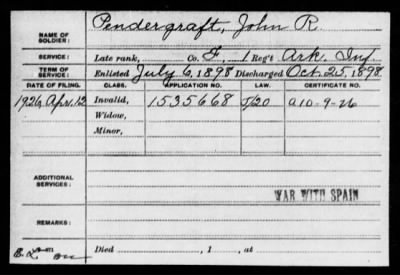 NAME OF SOLDIER: Pendergraft, John R
SERVICE: Late rank, Co. F, 1 Reg't Ark. Inf.
TERM OF SERVICE: Enlisted July 6, 1898 Discharged Oct. 25, 1898.
DATE OF FILING. CLASS. APPLICATION NO. LAW. CERTIFICATE NO.
1926, Apr. 12 Invalid, 1535668 J/20 A10-9-26
Widow,
Minor,
ADDITIONAL SERVICES:
WAR WITH SPAIN
REMARKS:
Died , 1 , at